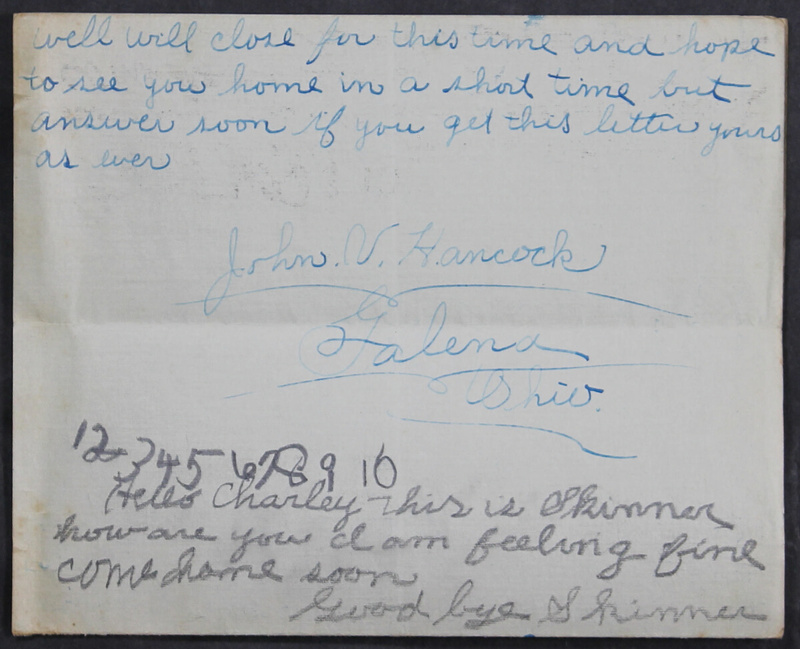 well will close for this time and hope
to see you home in a short time but
answer soon if you get this letter yours
as ever
John. V. Hancock
Galena
Ohio.
12345678910
Hello Charley this is Skinner
how are you I am feeling fine
come home soon
Good bye Skinner